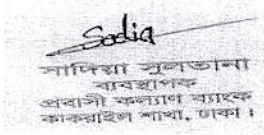 Sadia
সাদিয়া সুলতানা
ব্যবস্থাপক
প্রবাসী কল্যাণ ব্যাংক
কাকরাইল শাখা, ঢাকা।